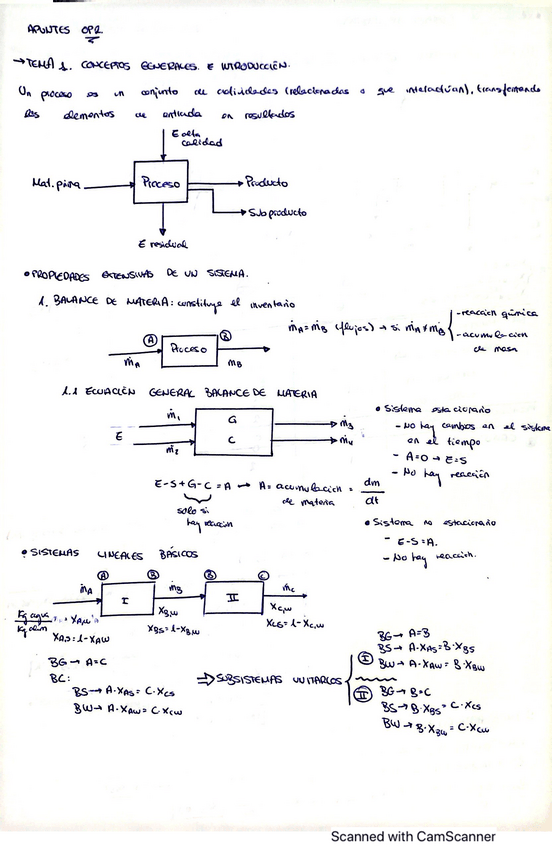 APUNTES OPR
→ TEMA 1. CONCEPTOS GENERALES E INTRODUCCIÓN.
Un proceso es un conjunto de actividades (relacionadas o que interactúan), transformando
los elementos de entrada en resultados
E alta
calidad
Mat. prima
Proceso
Producto
Subproducto
E residual
• PROPIEDADES EXTENSIVAS DE UN SISTEMA.
1. BALANCE DE MATERIA: constituye el inventario
A
Proceso
B
ṁA
ṁB
ṁA = ṁB (flujos) → si ṁA ≠ ṁB
- reacción química
- acumulacion
de masa
1.1 ECUACIÓN GENERAL BALANCE DE MATERIA
ṁ1
ṁ2
E
G
C
ṁ3
ṁ4
E-S+G-C = A → A = acumulación de materia = dm/dt
solo si
hay reacción
• Sistema estacionario
- No hay cambos en el sistema
en el tiempo
- A=0 → E=S
- No hay reacción
• Sistema no estacionario
- E-S=A.
- No hay reacción.
• SISTEMAS LINEALES BÁSICOS
ṁA
A
I
B
ṁB
B
II
C
ṁC
Kg agua
XA,W
XAS = 1-XAW
XB,W
XBS = 1-XB,W
XC,W
XCS = 1-XC,W
BG → A=C
BC:
BS → A·XAS = C·XCS
BW → A·XAW = C·XCW
⇒ SUBSISTEMAS UNITARIOS
I
BG → A=B
BS → A·XAS = B·XBS
BW → A·XAW = B·XBW
II
BG → B=C
BS → B·XBS = C·XCS
BW → B·XBW = C·XCW
Scanned with CamScanner